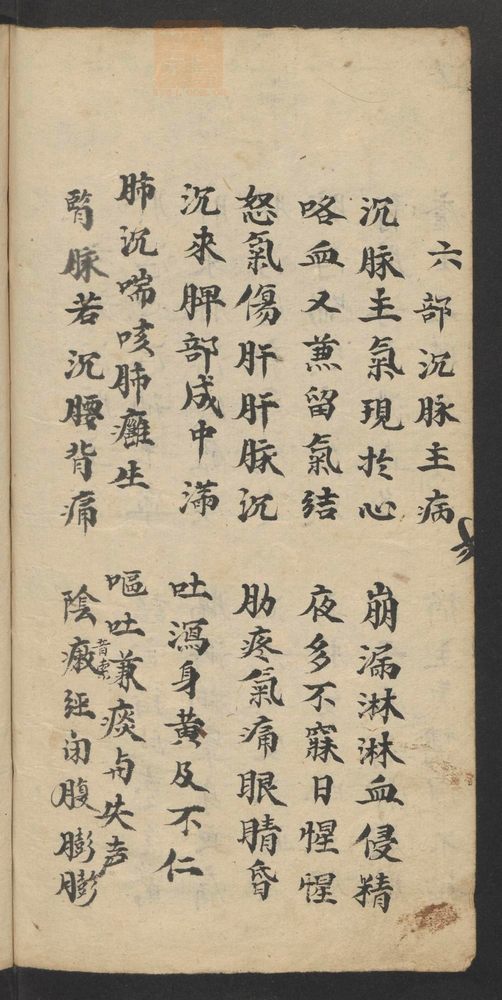 六部沉脉主病
沉脉主氣現於心 崩漏淋淋血侵精
咯血又兼留氣結 夜多不寐日惺惺
怒氣傷肝肝脉沉 肋疼氣痛眼睛昏
沉來脾部成中滿 吐瀉身黃及不仁
肺沉喘咳肺癰生 嘔吐兼痰与失声
腎脉若沉腰背痛 陰㿉經闭腹膨膨